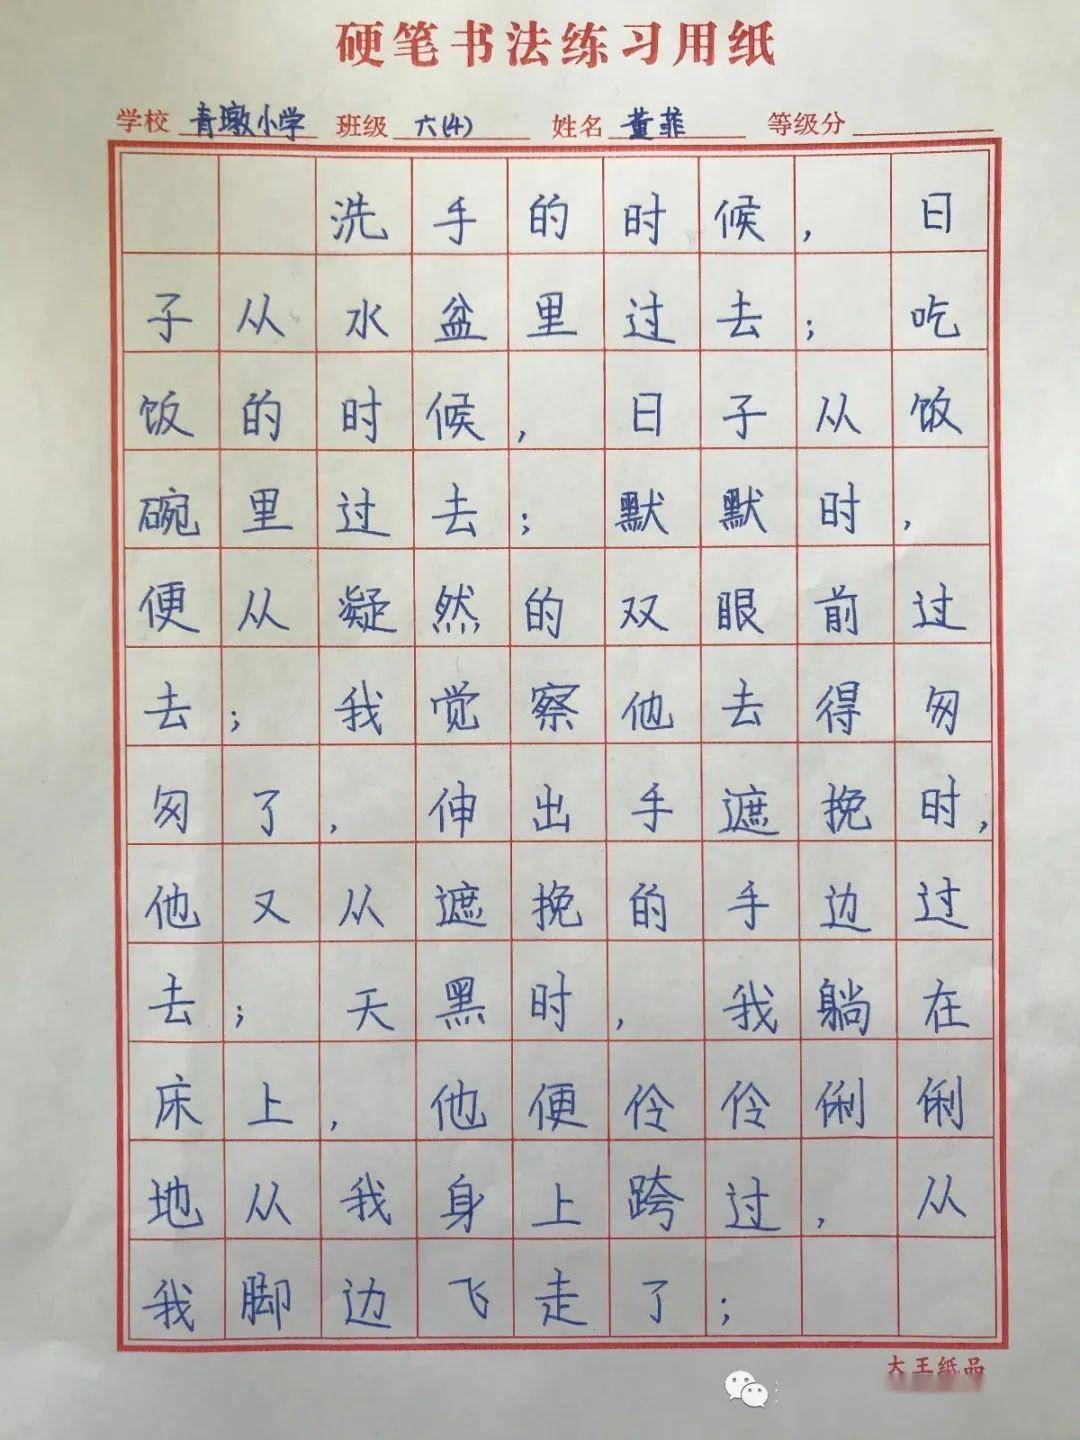 硬笔书法练习用纸
学校 青墩小学 班级 六(4) 姓名 董菲 等级分
洗手的时候，日
子从水盆里过去；吃
饭的时候，日子从饭
碗里过去；默默时，
便从凝然的双眼前过
去；我觉察他去得匆
匆了，伸出手遮挽时，
他又从遮挽的手边过
去；天黑时，我躺在
床上，他便伶伶俐俐
地从我身上跨过，从
我脚边飞走了；
大王纸品